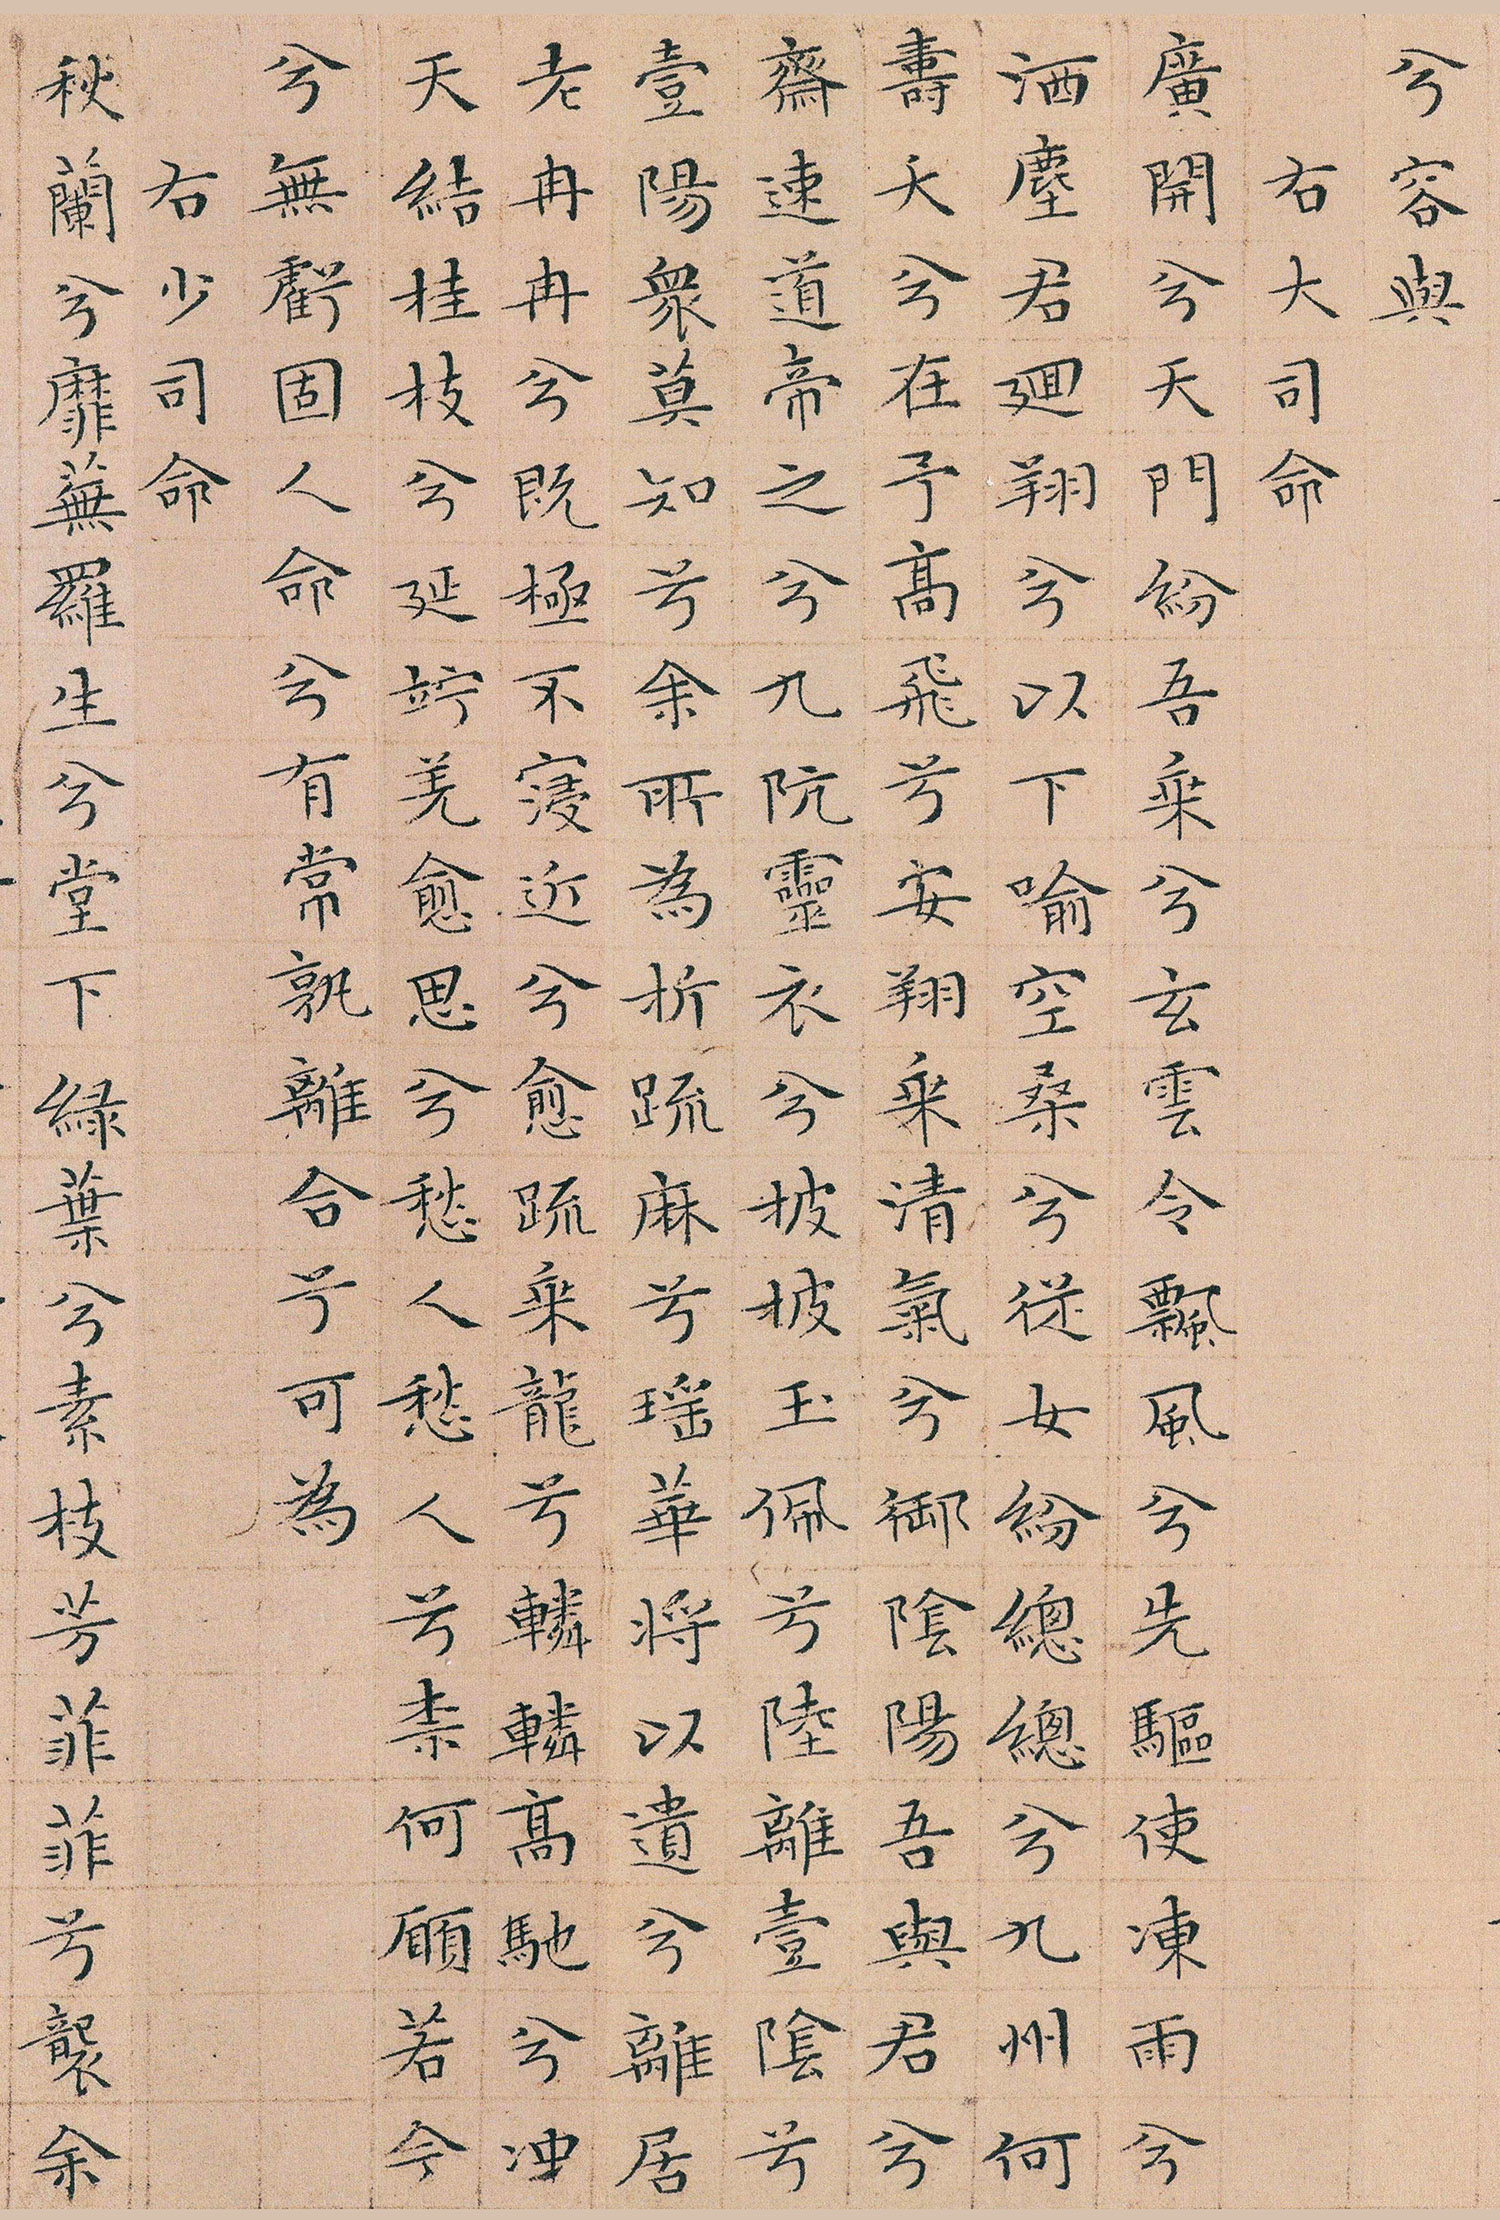 兮容與
右大司命
廣開兮天門紛吾乘兮玄雲令飄風兮先驅使凍雨兮
洒塵君廻翔兮以下喻空桑兮從女紛總總兮九州何
壽夭兮在予高飛兮安翔乘清氣兮御陰陽吾與君兮
齋速道帝之兮九阬靈衣兮披披玉佩兮陸離壹陰兮
壹陽衆莫知兮余所為折疏麻兮瑶華將以遺兮離居
老冉冉兮既極不寖近兮愈疏乘龍兮轔轔高馳兮冲
天結桂枝兮延竚羌愈思兮愁人愁人兮柰何願若今
兮無虧固人命兮有常孰離合兮可為
右少司命
秋蘭兮靡蕪羅生兮堂下緑葉兮素枝芳菲菲兮襲余